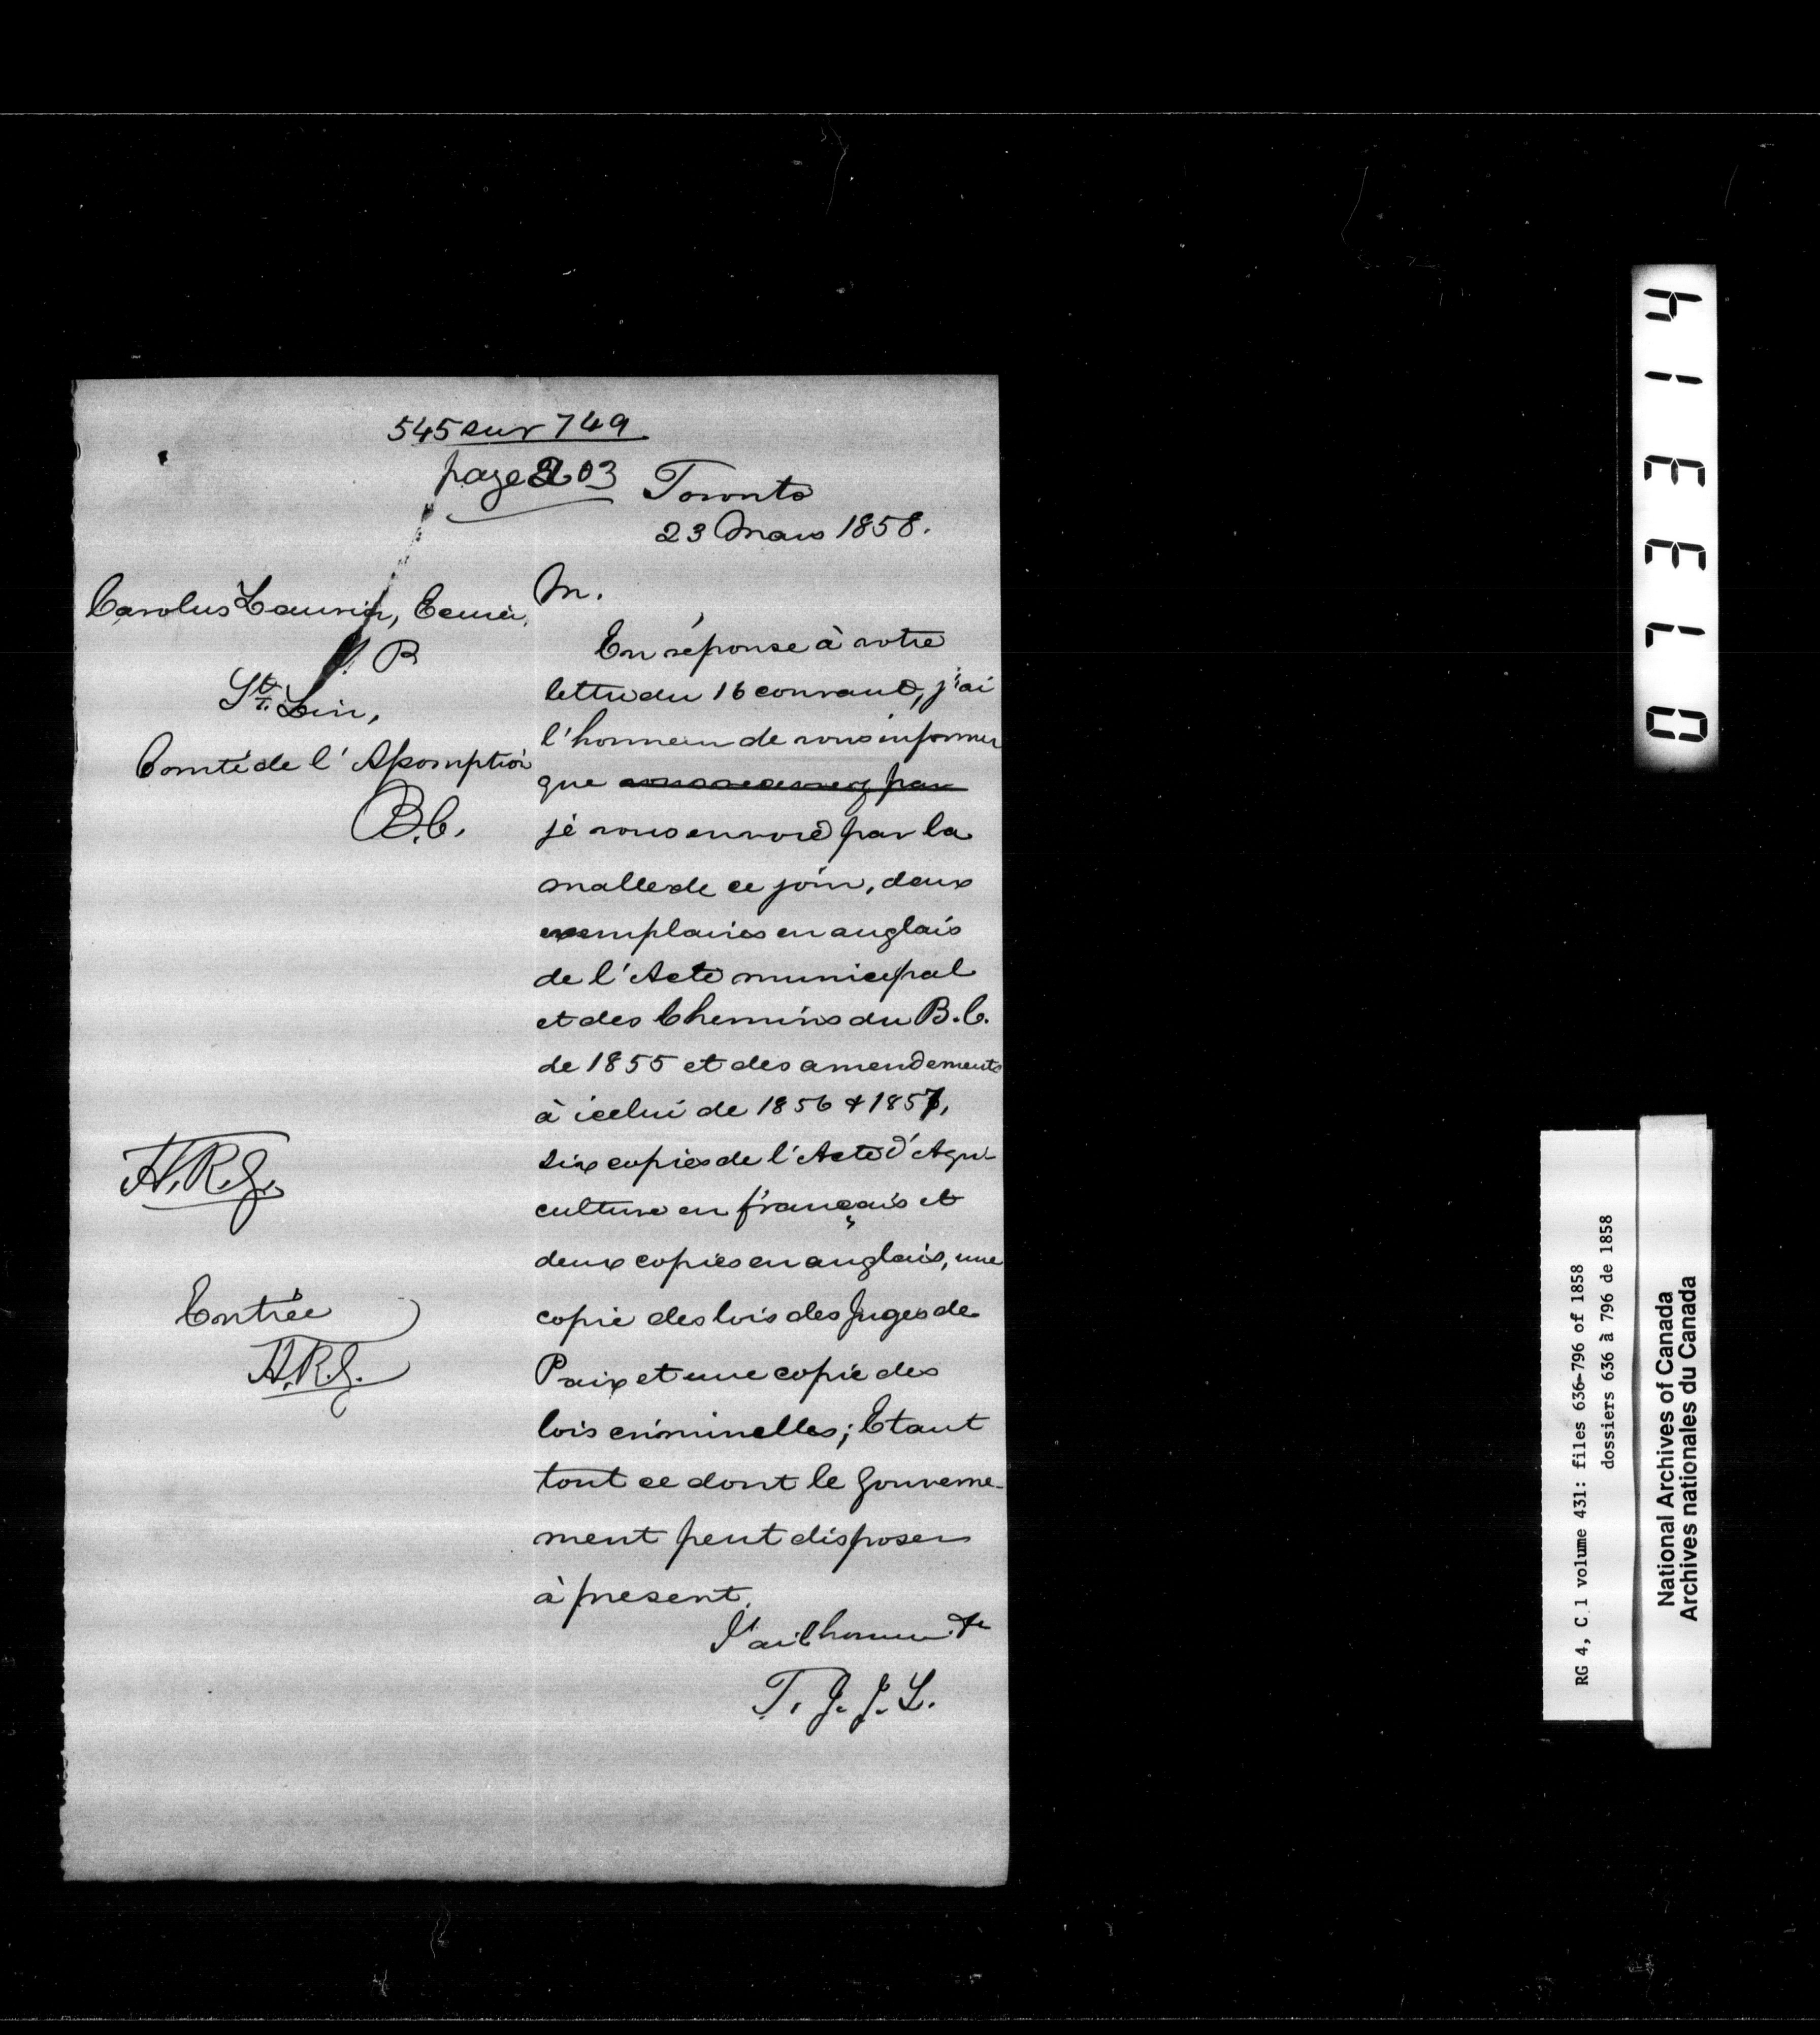 545 sur 749
page 203
Toronto
23 Mars 1858.
Carolus Laurier, Ecuier,
J. P
St. Lin,
Comté de l'Assomption
B.C.
M.
En réponse à votre
lettre du 16 courant, j'ai
l'honneur de vous informer
que vous recevrez par
je vous envoie par la
malle de ce jour, deux
exemplaires en anglais
de l'Acte municipal
et des Chemins du B.C.
de 1855 et des amendements
à icelui de 1856 & 1857,
six copies de l'Acte d'Agri-
culture en français et
deux copies en anglais, une
copie des lois des Juges de
Paix et une copie des
lois criminelles; Etant
tout ce dont le Gouverne-
ment peut disposer
à present.
J'ai l'honneur &c
T. J. J. L.
H.R.G.
Entrée
H.R.G.
013314
RG 4, C 1 volume 431: files 636-796 of 1858
dossiers 636 à 796 de 1858
National Archives of Canada
Archives nationales du Canada